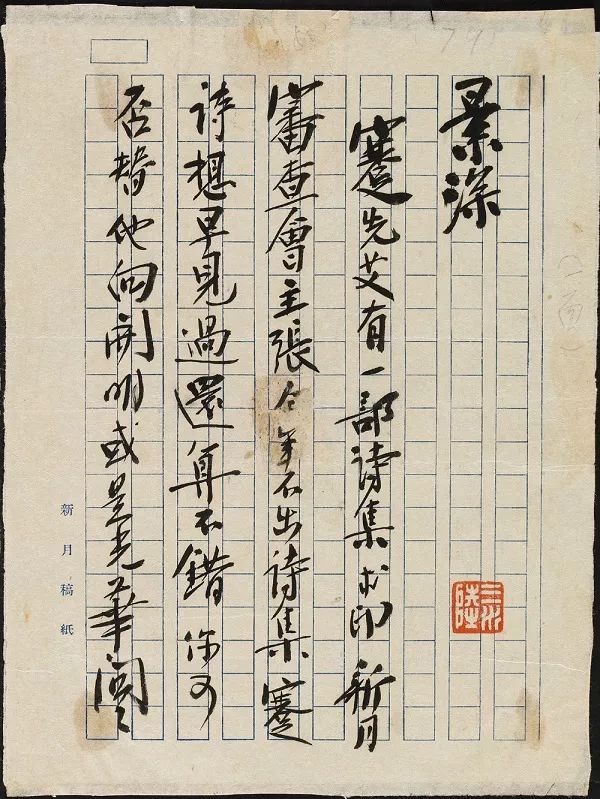 景深
蹇先艾有一部詩集求印新月
審查會主張今年不出詩集蹇
詩想早見過還算不錯你可
否替他向開明或是光華
新月稿紙